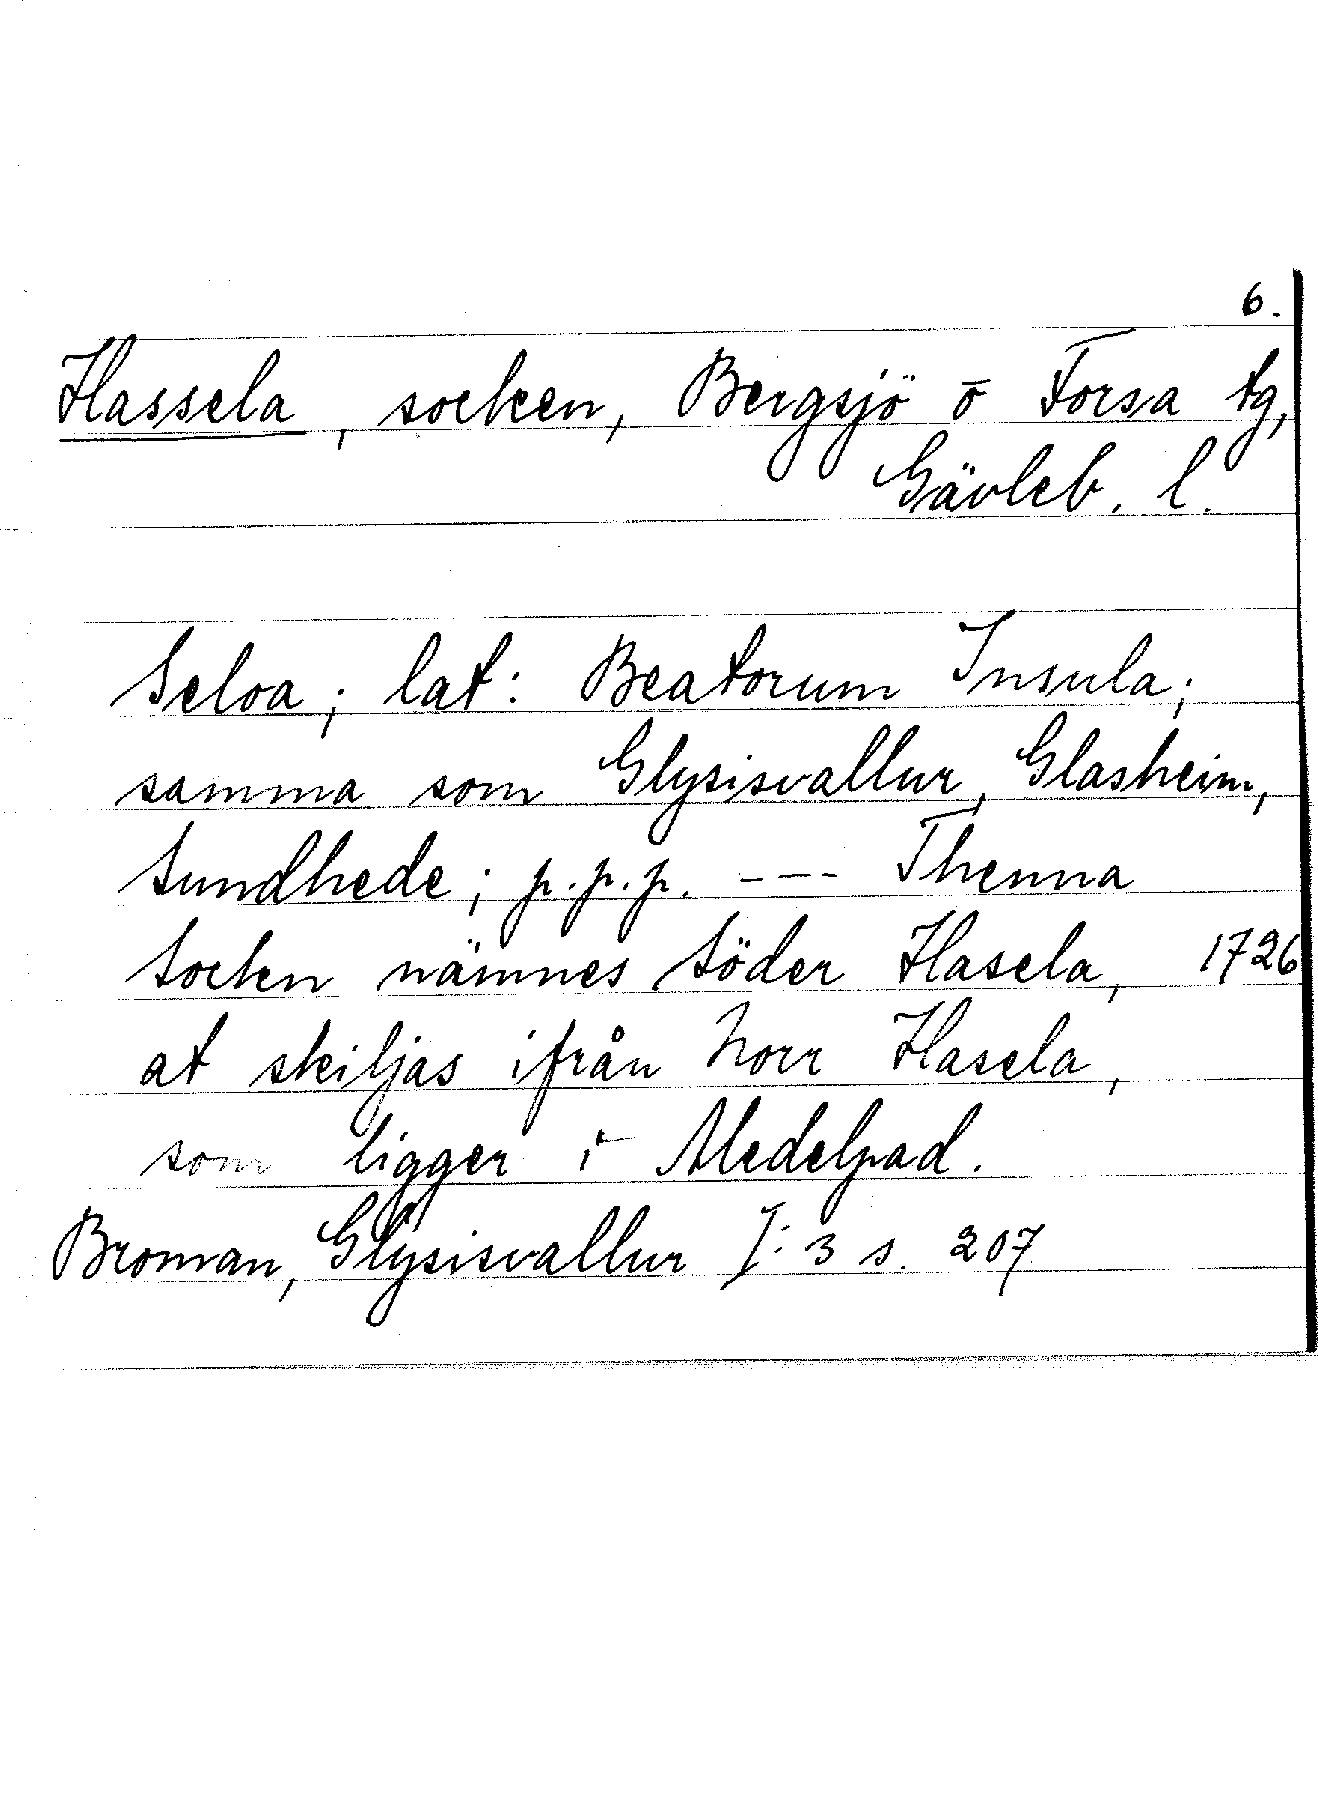 6.
Hassela, socken, Bergsjö o Forsa tg,
Gävleb. l.
Seloa; lat: Beatorum Insula;
samma som Glysisvallur, Glasheim,
Sundhede; p.p.p. --- Thenna
Socken nämnes Söder Hasela, 1726
at skiljas ifrån Norr Hasela,
som ligger i Medelpad.
Broman, Glysisvallur I:3 s. 207